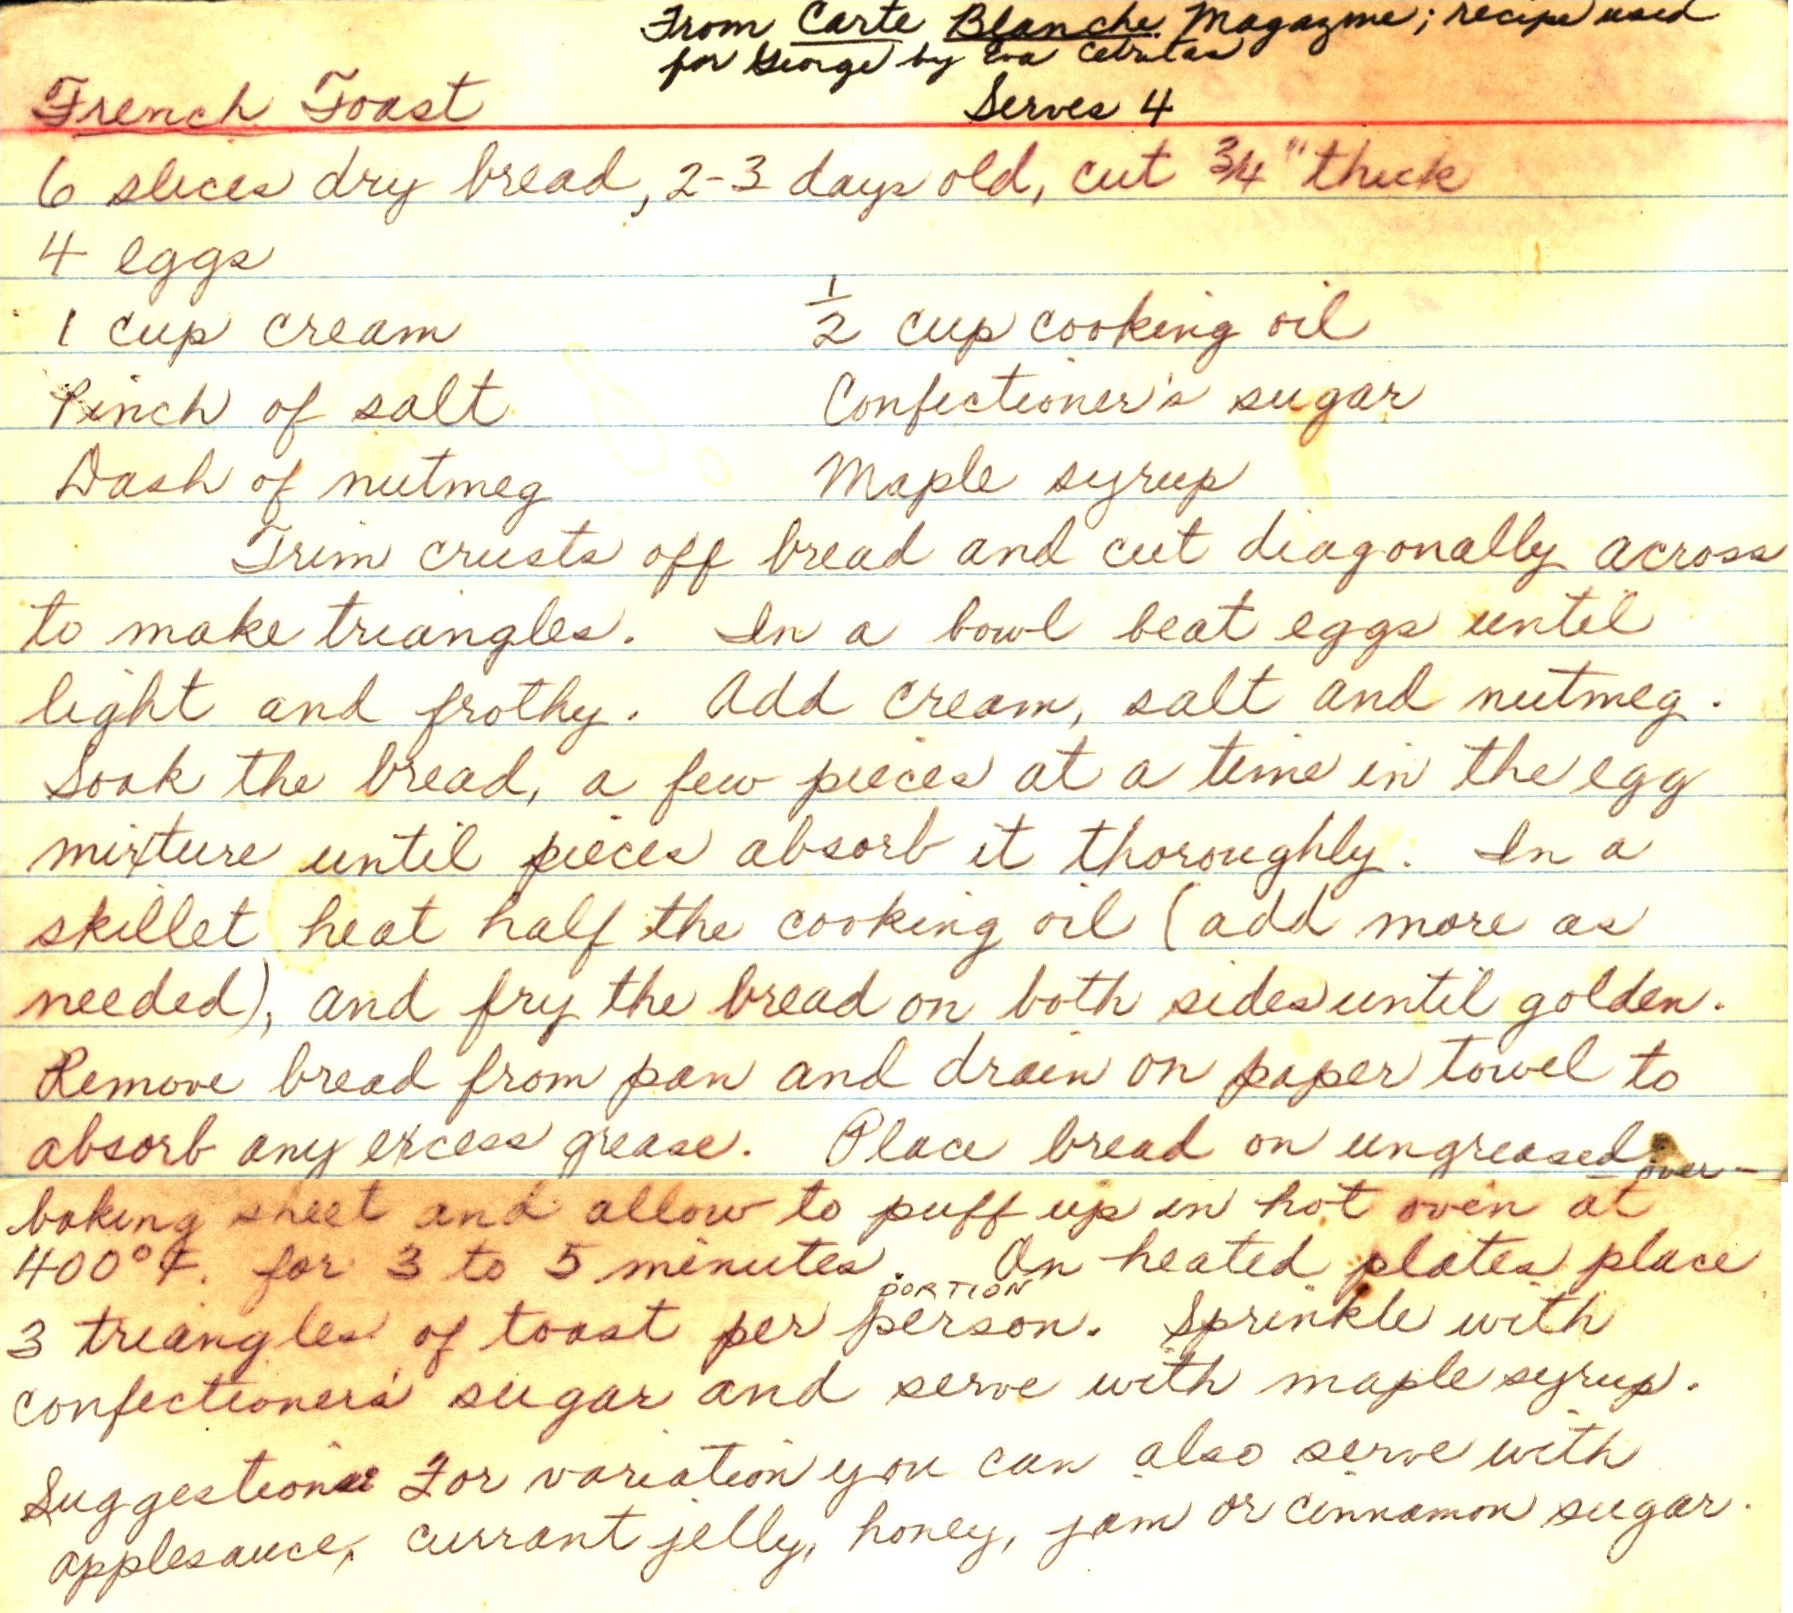 From Carte Blanche Magazine; recipe used
for George by Eva
French Toast
Serves 4
6 slices dry bread, 2-3 days old, cut 3/4" thick
4 eggs
1 cup cream
1/2 cup cooking oil
Pinch of salt
Confectioner's sugar
Dash of nutmeg
Maple syrup
Trim crusts off bread and cut diagonally across
to make triangles. In a bowl beat eggs until
light and frothy. Add cream, salt and nutmeg.
Soak the bread, a few pieces at a time in the egg
mixture until pieces absorb it thoroughly. In a
skillet heat half the cooking oil (add more as
needed), and fry the bread on both sides until golden.
Remove bread from pan and drain on paper towel to
absorb any excess grease. Place bread on ungreased
over-
baking sheet and allow to puff up in hot oven at
400° F. for 3 to 5 minutes. On heated plates place
PORTION
3 triangles of toast per person. Sprinkle with
confectioners' sugar and serve with maple syrup.
Suggestion: For variation you can also serve with
applesauce, currant jelly, honey, jam or cinnamon sugar.